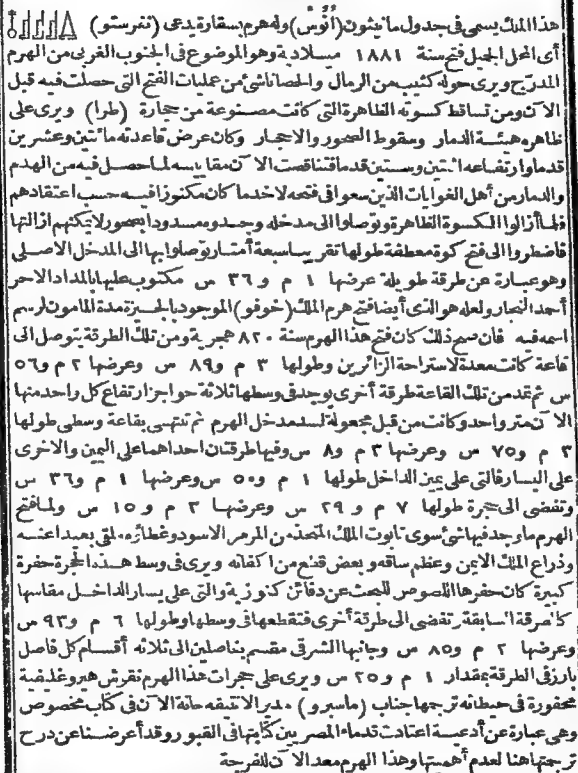 هذا الملك يسمى فى جدول مانيثون (أنُوس) وله هرم بسقارة يدعى (نفرستو)
أى المحل الجميل فتح سنة ١٨٨١ ميلادية وهو الموضوع فى الجنوب الغربى من الهرم
المدرّج ويرى حوله كثيب من الرمال والحصا ناشئ من عمليات الفتح التى حصلت فيه قبل
الآن ومن تساقط كسوته الظاهرة التى كانت مصنوعة من حجارة (طرا) ويرى على
ظاهره هيئة الدمار وسقوط الصخور والاحجار وكان عرض قاعدته مائتين وعشرين
قدما وارتفاعه اثنتين وستين قدما فتناقصت الآن مقاييسه لما حصل فيه من الهدم
والدمار من أهل الغوايات الذين سعوا فى فتحه لاخذ ما كان مكنوزا فيه حسب اعتقادهم
فلما أزالوا الكسوة الظاهرة وتوصلوا الى مدخله وجدوه مسدودا بصخور لا يمكنهم ازالتها
فاضطروا الى فتح كوة منعطفة طولها تقريبا سبعة أمتار توصلوا بها الى المدخل الاصلى
وهو عبارة عن طرقة طويلة عرضها ١ م و٣٦ س مكتوب عليها بالمداد الاحمر
أحمد النجار ولعله هو الذى أيضا فتح هرم الملك (خوفو) الموجود بالجيزة مدة المامون لرسم
اسمه فيه فان صح ذلك كان فتح هذا الهرم سنة ٨٢٠ هجرية ومن تلك الطرقة يتوصل الى
قاعة كانت معدة لاستراحة الزائرين وطولها ٣ م و٨٩ س وعرضها ٢ م و٥٦
س ثم تمتد من تلك القاعة طرقة أخرى يوجد فى وسطها ثلاثة حواجز ارتفاع كل واحد منها
الآن متر واحد وكانت من قبل مجعولة لسد مدخل الهرم ثم تنتهى بقاعة وسطى طولها
٣ م و٧٥ س وعرضها ٣ م و٨ س وفيها طرقتان احداهما على اليمين والاخرى
على اليسار فالتى على يمين الداخل طولها ١ م و٥٠ س وعرضها ١ م و٣٦ س
وتفضى الى حجرة طولها ٧ م و٢٩ س وعرضها ٣ م و١٥ س ولما فتح
الهرم ما وجد فيها شئ سوى تابوت الملك المتخذ من المرمر الاسود وغطاؤه ملقى بعيدا عنه
وذراع الملك الايمن وعظم ساقه وبعض قطع من اكفانه ويرى فى وسط هذه الحجرة حفرة
كبيرة كان حفرها اللصوص للبحث عن دفائن كنوزية والتى على يسار الداخل مقاسها
كالطرقة السابقة وتفضى الى طرقة أخرى فتقطعها فى وسطها وطولها ٦ م و٩٣ س
وعرضها ٢ م و٨٥ س وجانبها الشرقى مقسم بفاصلين الى ثلاثه أقسام كل فاصل
بارز فى الطرقة بمقدار ١ م و٢٥ س ويرى على حجرات هذا الهرم نقوش هيروغليفية
محفورة فى حيطانه ترجمها جناب (ماسبرو) مدير الانتيقه خانة الآن فى كتاب مخصوص
وهى عبارة عن أدعية اعتادت قدماء المصريين كتابتها فى القبور وقد أعرضنا عن درج
ترجمتها هنا لعدم أهميتها وهذا الهرم معد الآن للفرجة